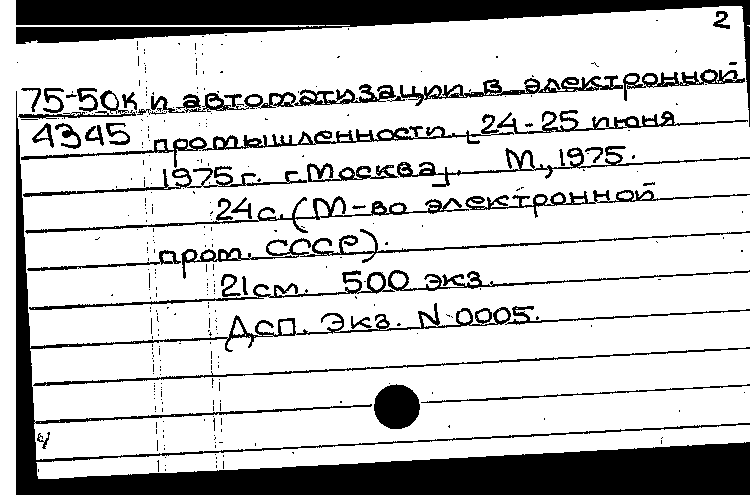 2
75-50к и автоматизации в электронной
4345 промышленности. [24-25 июня
1975г. г.Москва]. М., 1975.
24с. (М-во электронной
пром. СССР).
21см. 500 экз.
Дсп. Экз. N 0005.